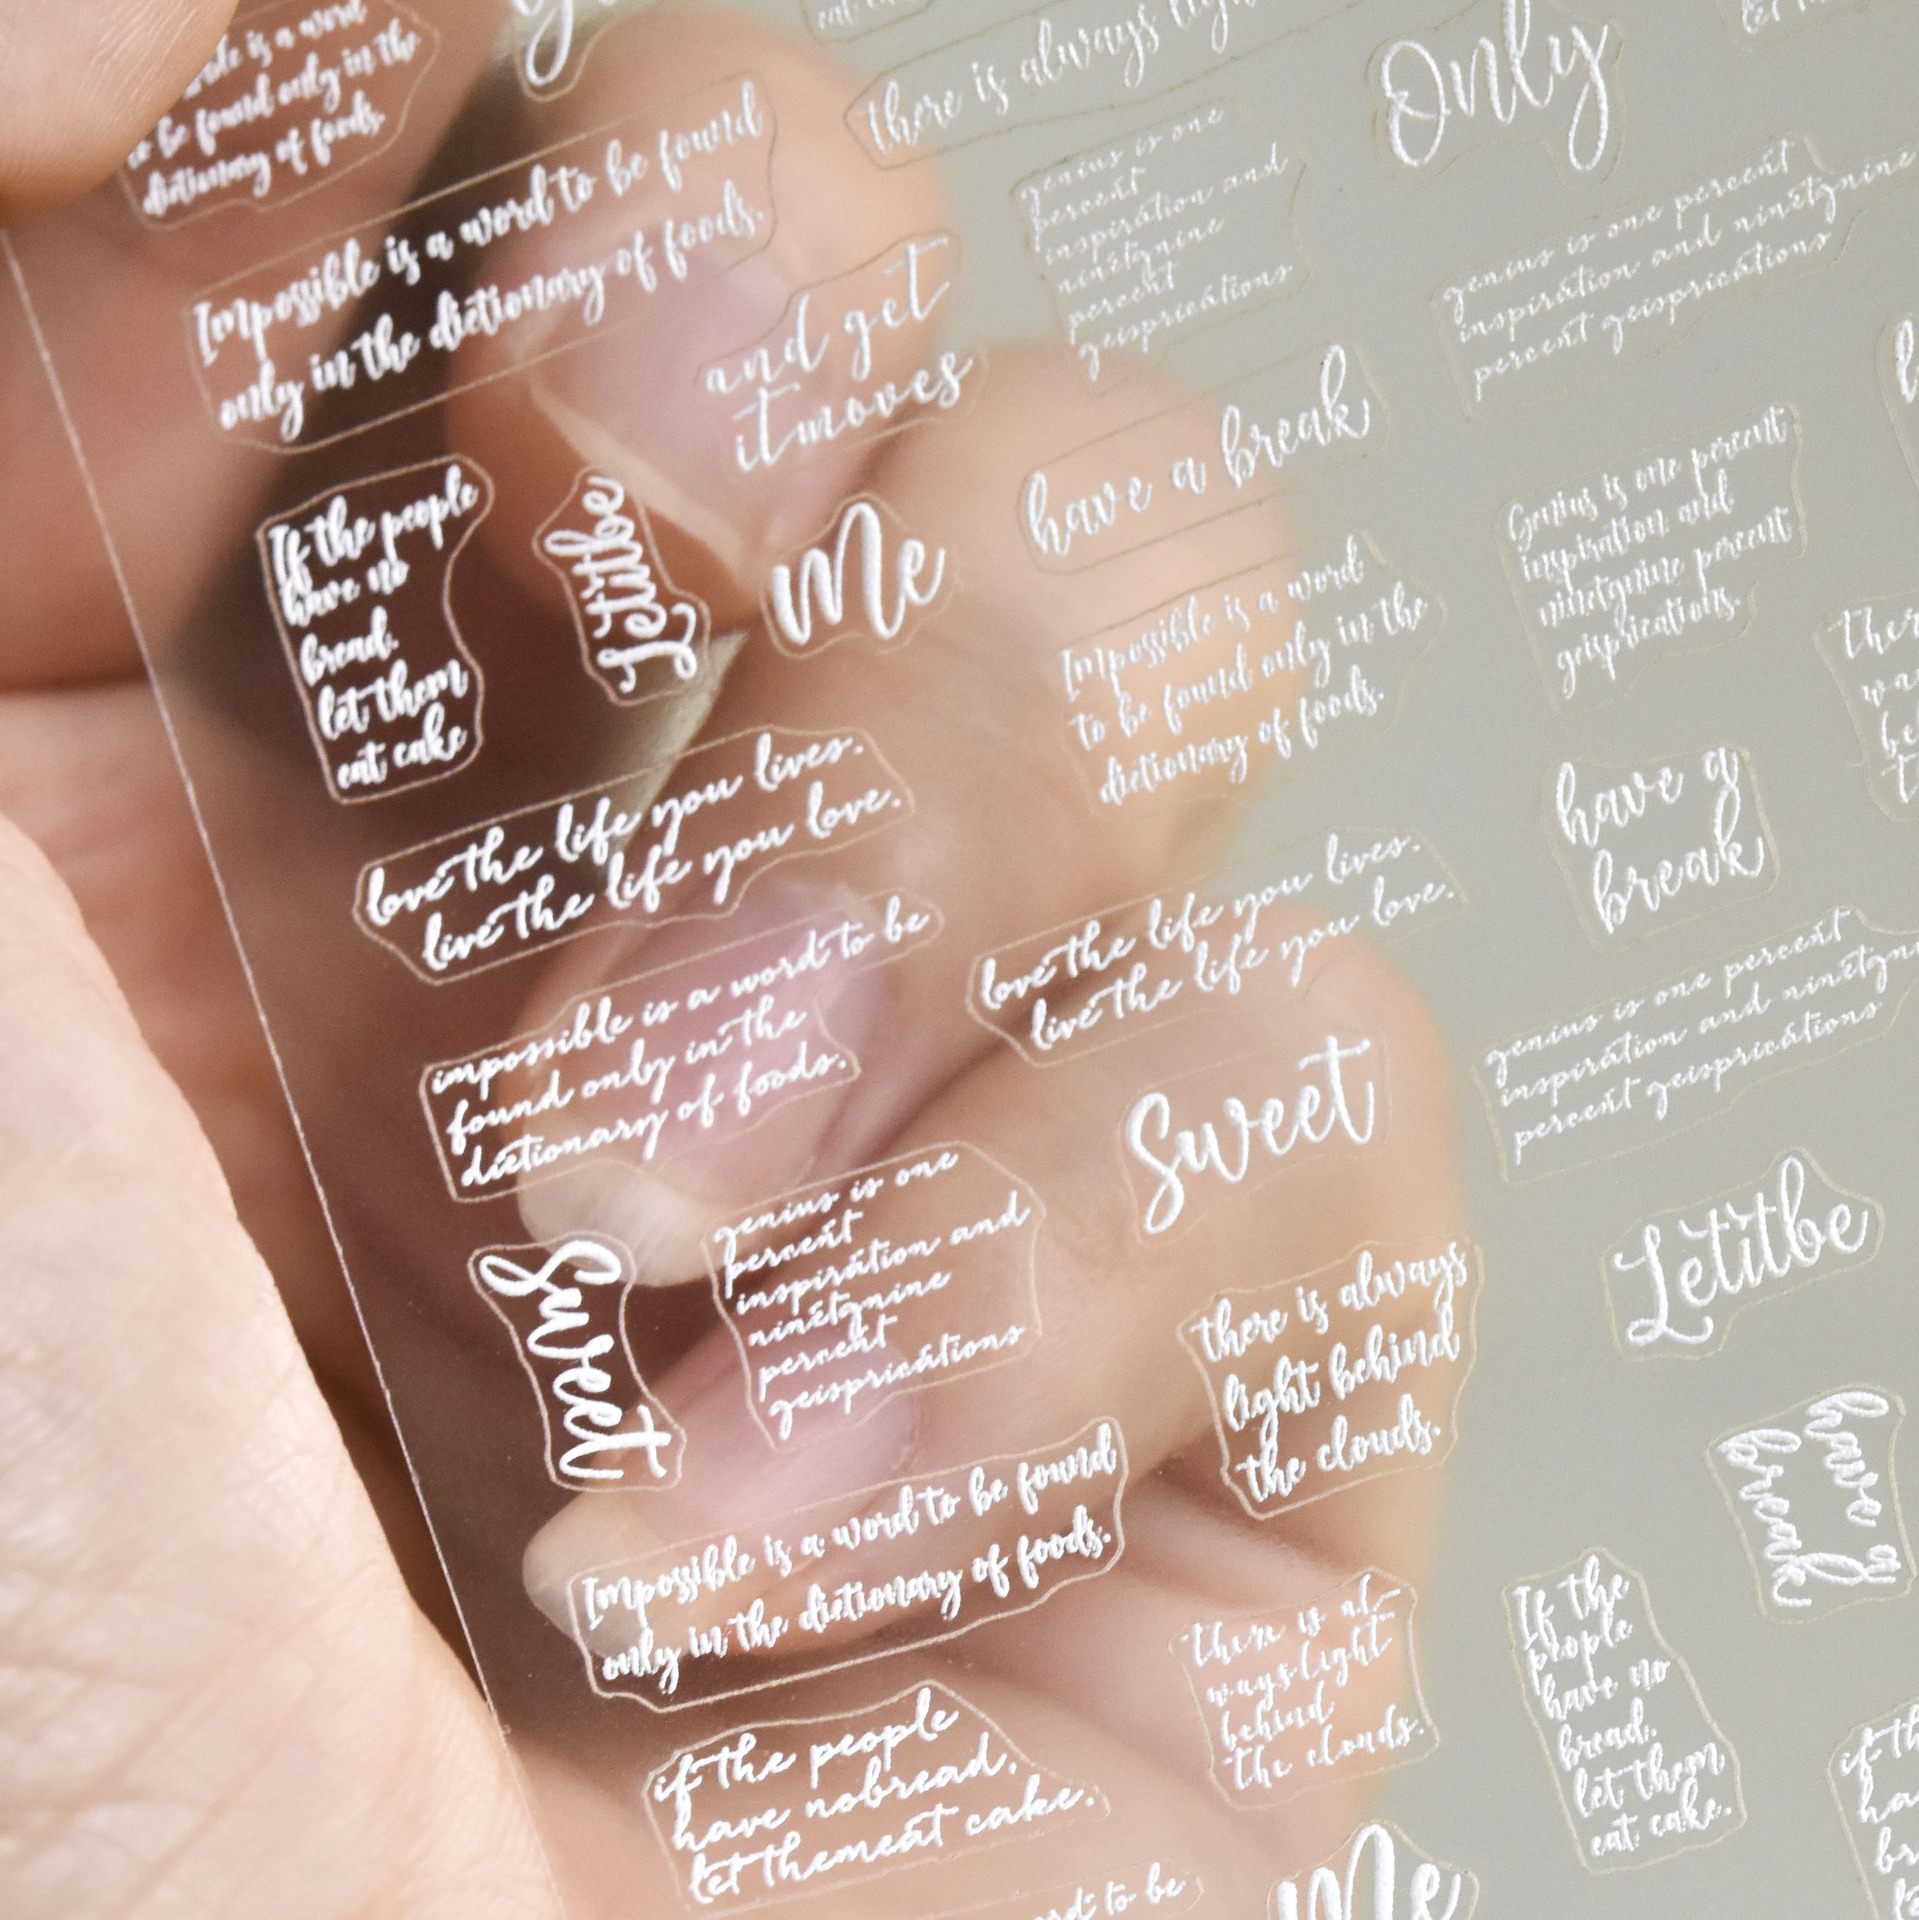 is a word
to be found only in the
dictionary of foods.
there is always
Only
Impossible is a word to be found
only in the dictionary of foods.
and get
itmoves
genius is one
percent
inspiration and
ninetynine
percent
geisprications
genius is one percent
inspiration and ninetynine
percent geisprications
have a break
If the people
have no
bread.
let them
eat cake
Letitbe
Me
Impossible is a word
to be found only in the
dictionary of foods.
Genius is one percent
inspiration and
ninetynine percent
geisprications.
love the life you lives.
live the life you love.
have a
break
impossible is a word to be
found only in the
dictionary of foods.
love the life you lives.
live the life you love.
genius is one percent
inspiration and
percent geisprications
Sweet
Sweet
genius is one
percent
inspiration and
ninetynine
percent
geisprications
there is always
light behind
the clouds.
Letitbe
have a
break
Impossible is a word to be found
only in the dictionary of foods.
there is al-
ways light
behind
the clouds.
If the
people
have no
bread.
let them
eat cake.
if the people
have nobread,
let themeat cake.
to be
Me